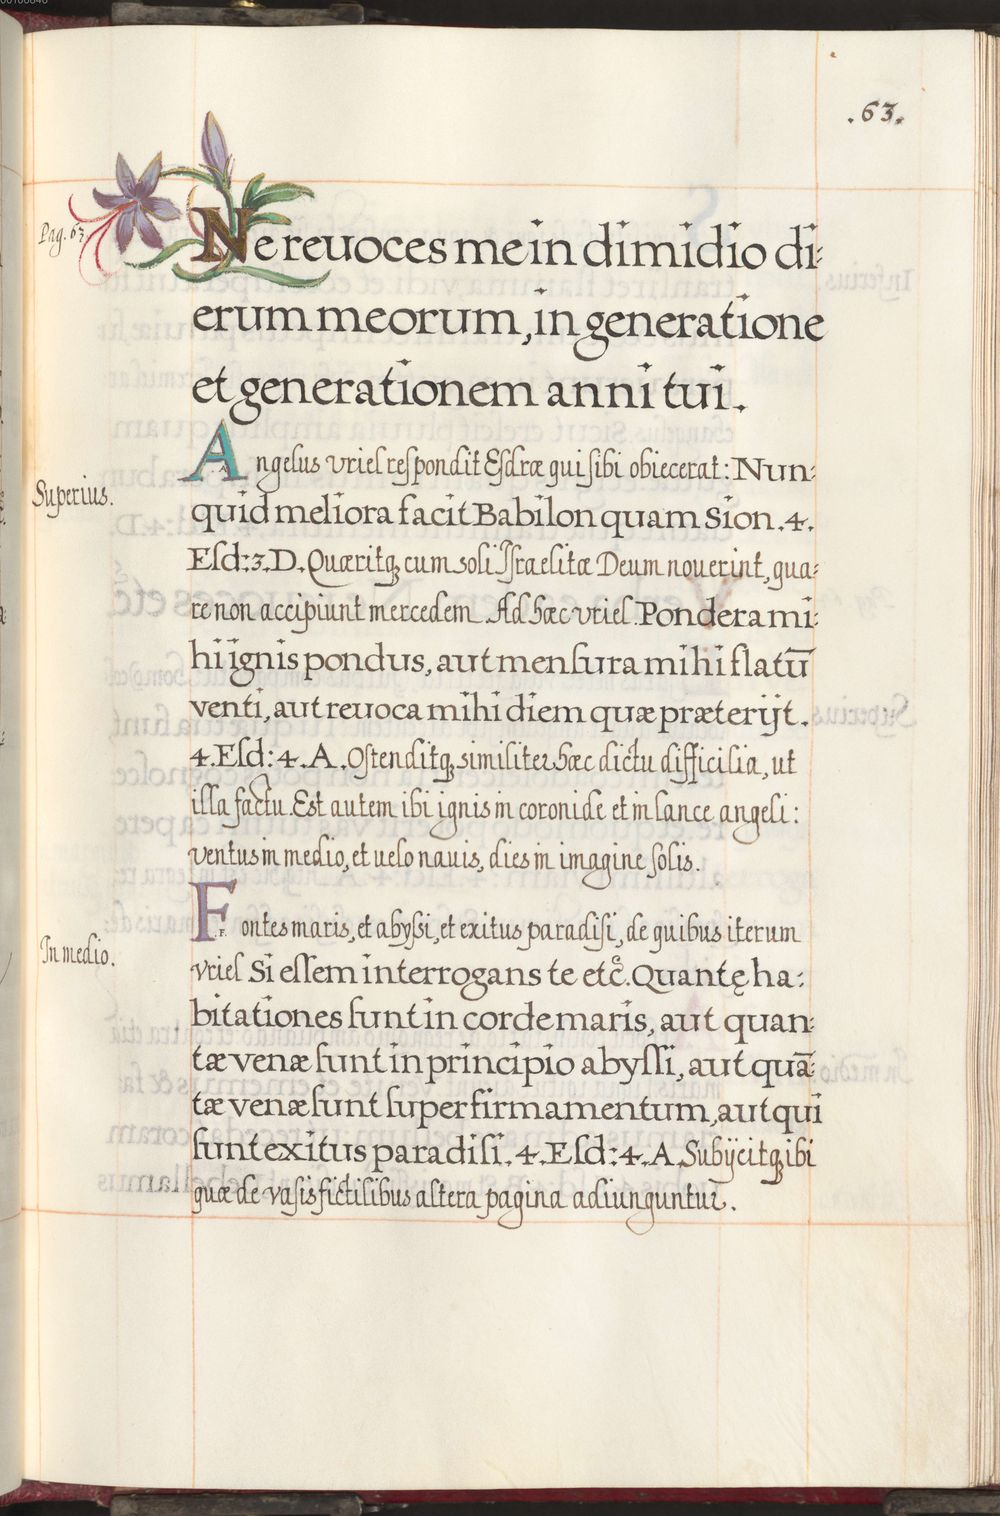 .63.
Pag. 63.
Ne reuoces me in dimidio di:
erum meorum, in generatione
et generationem anni tui.
Superius.
Angelus Vriel respondit Esdræ qui sibi obiecerat: Nun:
quid meliora facit Babilon quam Sion .4.
Esd: 3. D. Quæritq; cum soli Israelitæ Deum nouerint, qua:
re non accipiunt mercedem. Ad hæc Vriel. Pondera mi:
hi ignis pondus, aut mensura mihi flatū
venti, aut reuoca mihi diem quæ præterijt.
4. Esd: 4. A. Ostenditq; similiter hæc dictu difficilia, ut
illa factu. Est autem ibi ignis in coronide et in lance angeli:
ventus in medio, et uelo nauis, dies in imagine solis.
In medio.
Fontes maris, et abyssi, et exitus paradisi, de quibus iterum
Vriel Si essem interrogans te etc̄. Quantę ha:
bitationes sunt in corde maris, aut quan:
tæ venæ sunt in principio abyssi, aut quā:
tæ venæ sunt super firmamentum, aut qui
sunt exitus paradisi. 4. Esd: 4. A. Subijcitq; ibi
quæ de vasis fictilibus altera pagina adiunguntur.